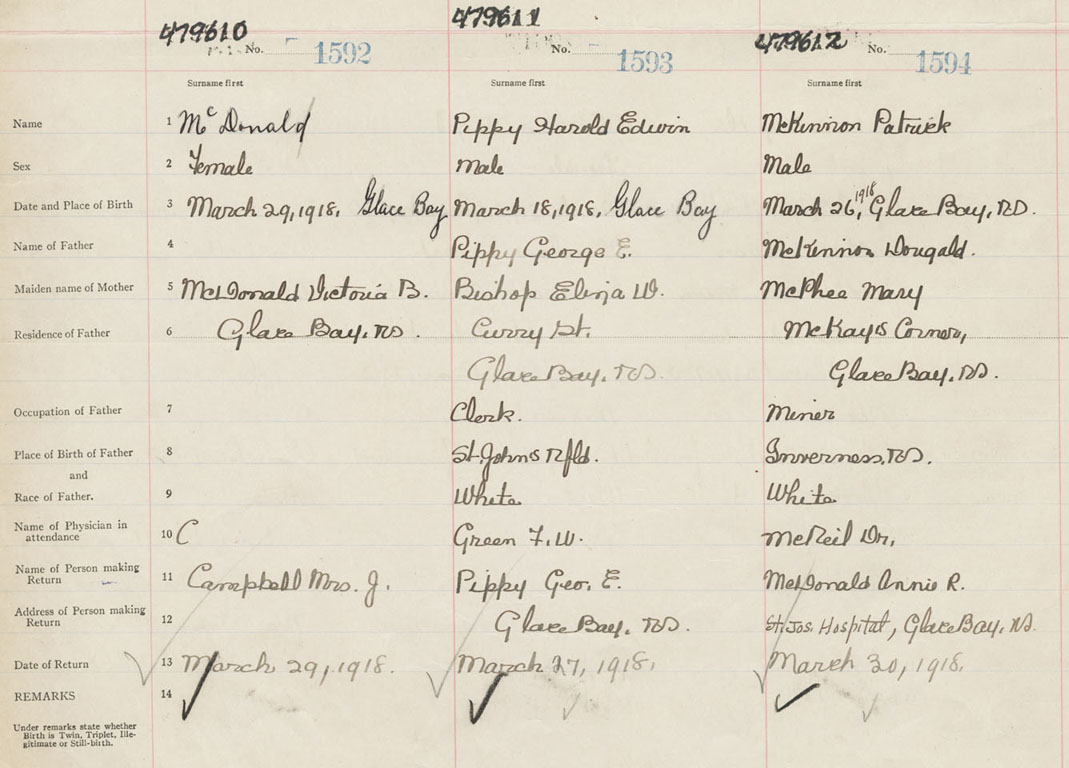 479610 479611 479612
No. 1592 No. 1593 No. 1594
Surname first Surname first Surname first
Name 1 McDonald Pippy Harold Edwin McKinnon Patrick
Sex 2 Female Male Male
Date and Place of Birth 3 March 29, 1918, Glace Bay March 18, 1918, Glace Bay March 26, 1918 Glace Bay, N.S.
Name of Father 4 Pippy George E. McKinnon Dougald.
Maiden name of Mother 5 McDonald Victoria B. Bishop W. McPhee Mary
Residence of Father 6 Glace Bay, N.S. Curry St. McKay's Corner,
Glace Bay, N.S. Glace Bay, N.S.
Occupation of Father 7 Clerk. Miner
Place of Birth of Father 8 St. Johns Nfld. Inverness, N.S.
and
Race of Father. 9 White White
Name of Physician in
attendance 10 C Green F. W. McNeil Dr.
Name of Person making
Return 11 Campbell Mrs. J. Pippy Geo. E. McDonald Annie R.
Address of Person making
Return 12 Glace Bay, N.S. St. Jos. Hospital, Glace Bay, N.S.
Date of Return 13 March 29, 1918. March 27, 1918. March 30, 1918.
REMARKS 14
Under remarks state whether
Birth is Twin, Triplet, Ille-
gitimate or Still-birth.